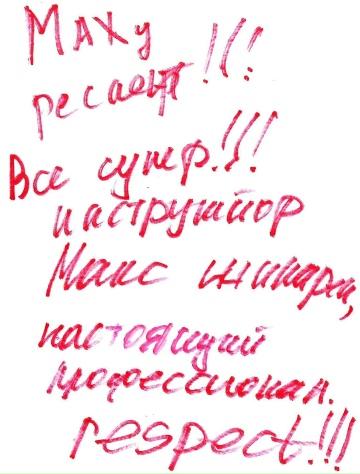 Маху
респект!!!
Все супер!!!
инструктор
Макс шикарен,
настоящий
профессионал.
respect!!!